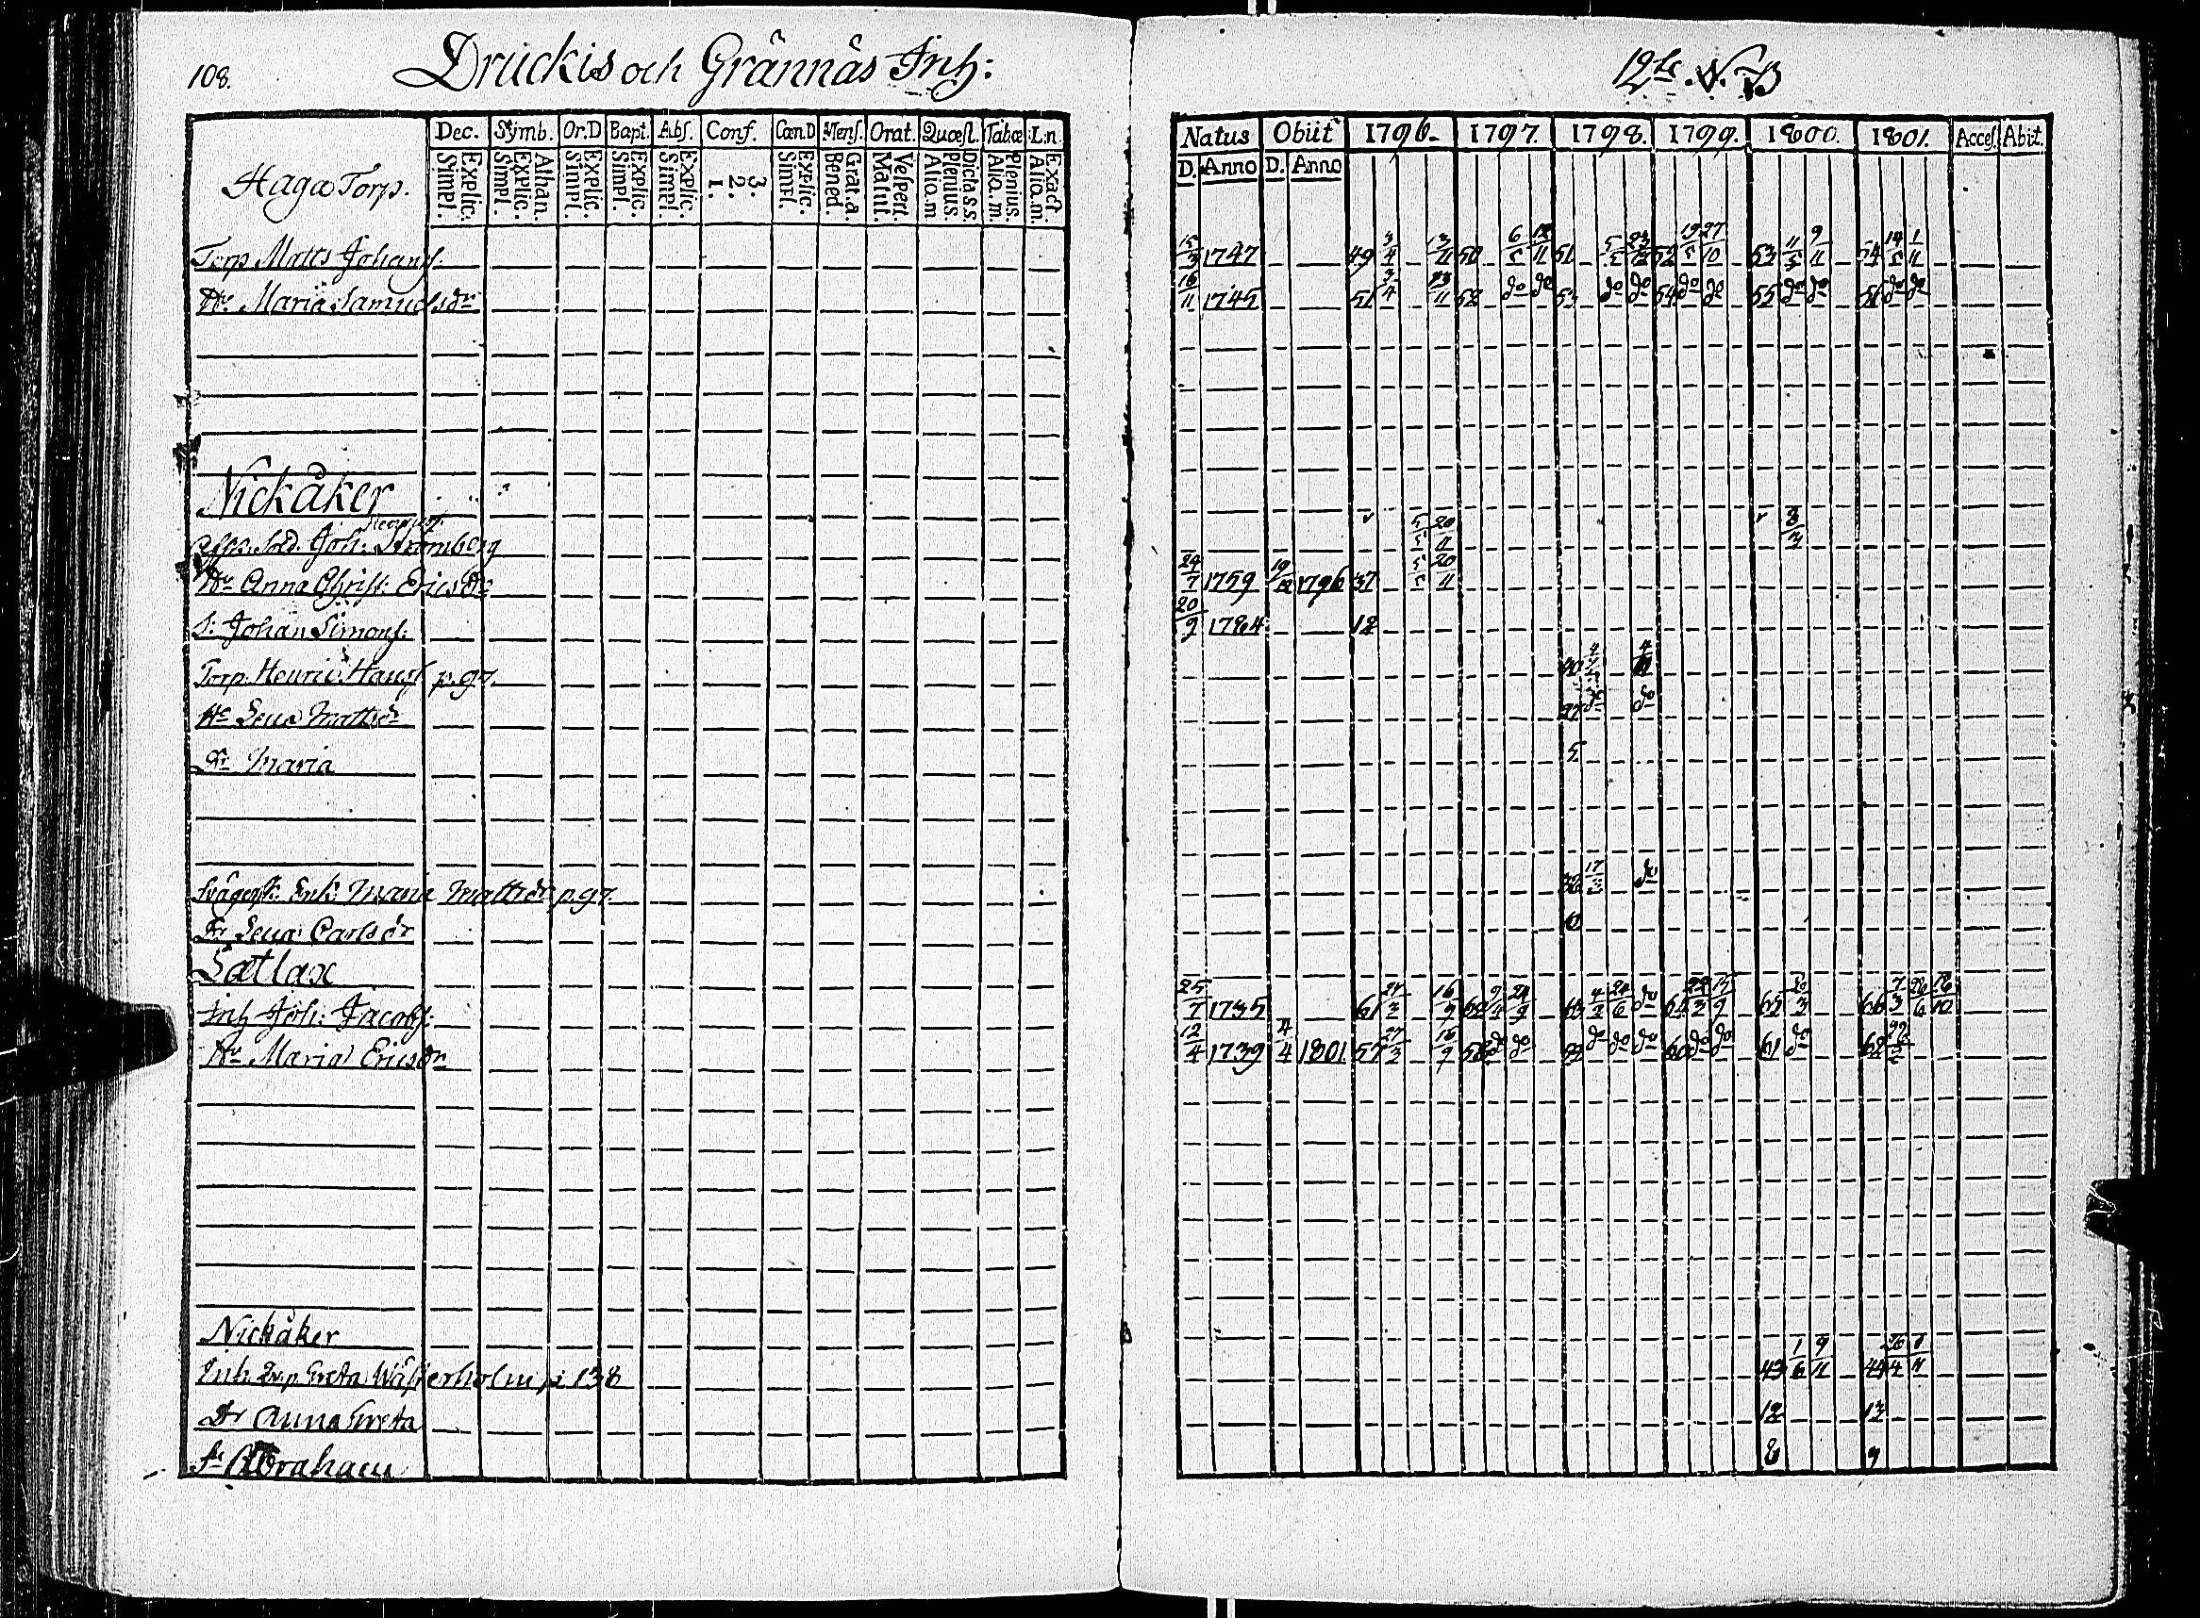 108. Druckis och Grännäs Inh:
Dec. Symb. Or.D Bapt. Abs. Conf. Cæn.D Mens. Orat. Quæst. Tabæ L.n.
Haga Torp.
Explic. Simpl. Athan. Explic. Simpl. Explic. Simpl. Explic. Simpl. Explic. Simpl. 3. 2. 1. Explic. Simpl. Grat.a. Bened. Vespert. Matut. Dicta s.s. Plenius Alio.m Plenius. Alio.m. Exact. Alio.m.
Torp Matts Johans.
Hu Maria Samuelsdr
Nickåker
Sold. Joh: Strömberg
Hu Anna Christ: Ericsdr
S: Johan Simons:
Torp. Henric Hans p. 97.
Hu Lena Mattsdr
Dr Maria
Enk: Maria Mattsdr p. 97.
Dr Lena Carlsdr
Satlax
Inh Joh: Jacobs:
Hu Maria Ericsdr
Nickåker
Inh Greta Wästerholm p: 138
Dr Anna Greta
S: Abraham
12te N. B
Natus Obiit 1796. 1797. 1798. 1799. 1800. 1801. Acces. Abiit.
D. Anno D. Anno
15/3 1747 49 3/4 50 6/5 12/11 51 52 19/5 27/10 53 11/5 9/11 54 14/5 1/11
16/11 1745 51 3/4 52 do do 53 do do 54 do do 55 do do 56 do do
5/5 20/11
24/7 1759 19/12 1796 37 5/5 20/11
20/9 1784 12
do do
5
do
25/7 1735 61 62 64 65 20/3 66
12/4 1739 4/4 1801 57 27/3 16/9 58 do do 59 do do do 60 do do 61 do 62
43 1/6 9/11 44
12 13
8 9